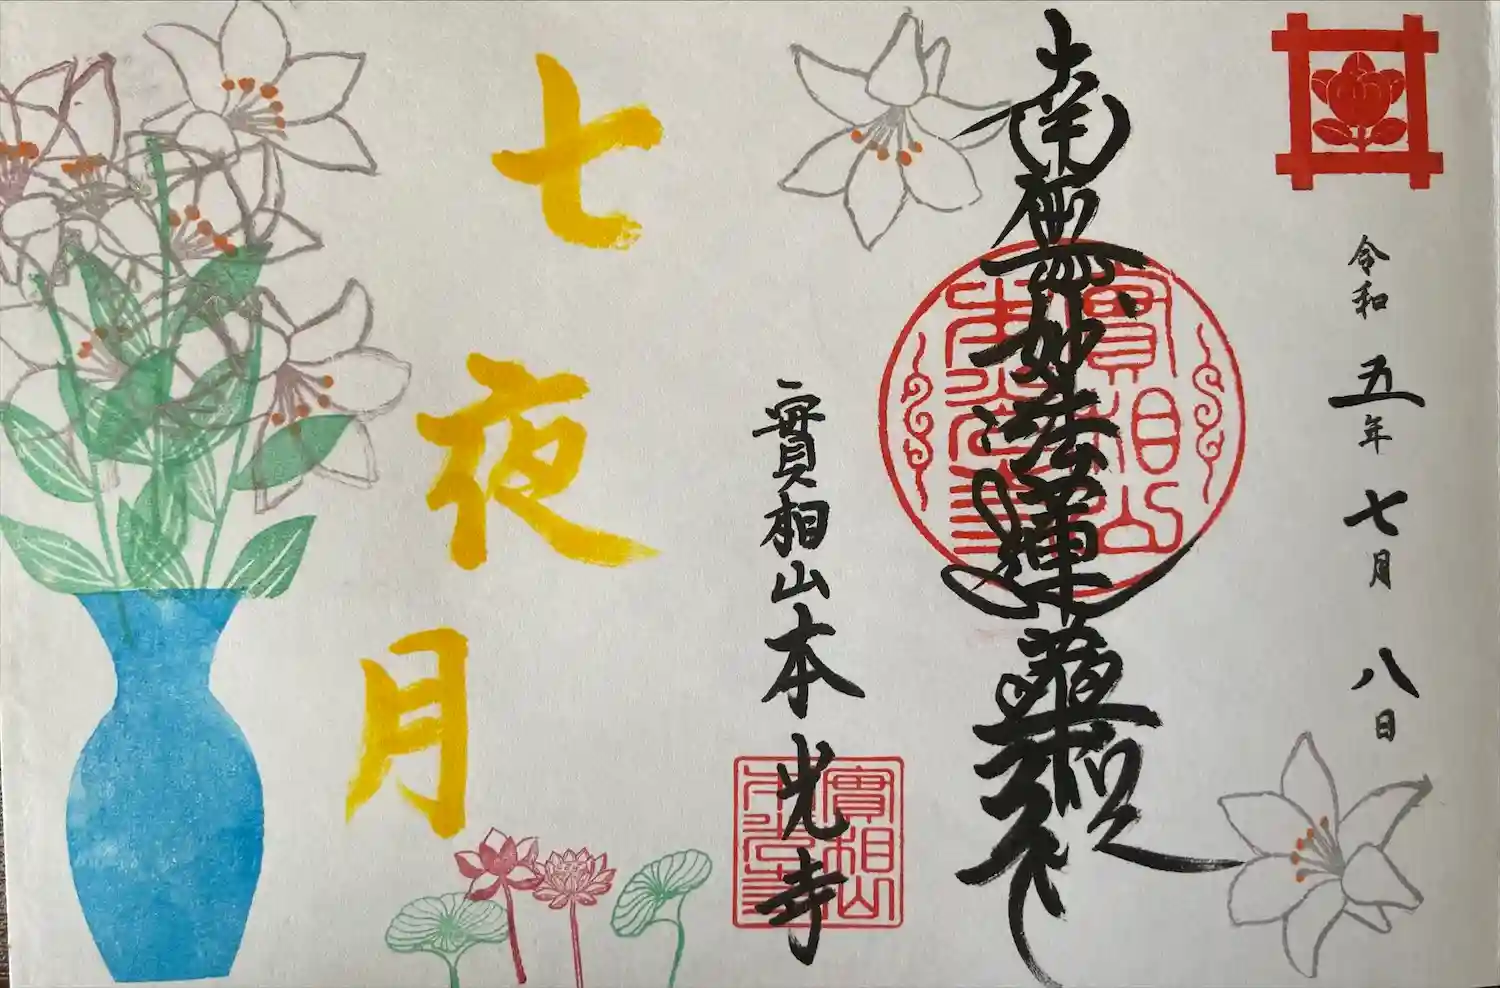 令和五年七月八日
南無妙法蓮華経
實相山
本光寺
實相山本光寺
實相山
本光寺
七夜月